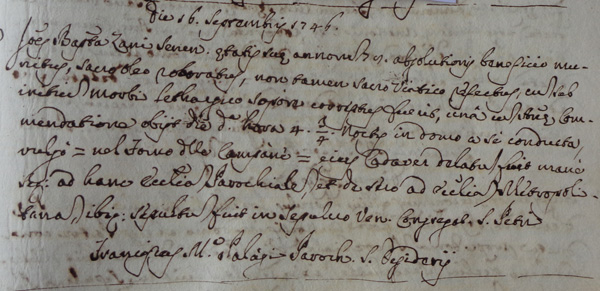 Die 16. Septembris 1746.
Joes Bapta Zani Senen. ętatis suę annorũ 7. absolutionis beneficio mu-
nitus, sacro oleo roboratus, non tamen sacro Viatico refectus, cũ sub
initiũ morbi lethargico sopore correptus fuerit, unà cũ Anę Com-
mendatione obijt die dª hora 4. 3/4. Noctis in domo a se conducta,
vulgo = nel Torno dlle Campane = eius Cadaver delatũ fuit manè
seq: ad hanc Eccliã Parochialẽ et de sero ad Eccliã Metropoli-
tanã ibiq: sepultũ fuit in sepulcro Ven. Congregat. S. Petri
Franciscus M.ª Palagi Paroch. S. Desiderij